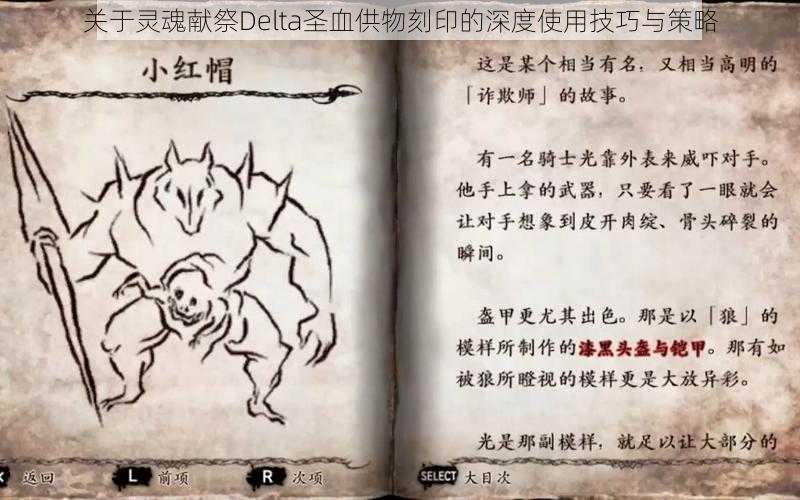 关于灵魂献祭Delta圣血供物刻印的深度使用技巧与策略
小红帽
这是某个相当有名，又相当高明的
「诈欺师」的故事。
有一名骑士光靠外表来威吓对手。
他手上拿的武器，只要看了一眼就会
让对手想象到皮开肉绽、骨头碎裂的
瞬间。
盔甲更尤其出色。那是以「狼」的
模样所制作的漆黑头盔与铠甲。那有如
被狼所瞪视的模样更是大放异彩。
光是那副模样，就足以让大部分的
返回 L 前项 R 次项 SELECT 大目次